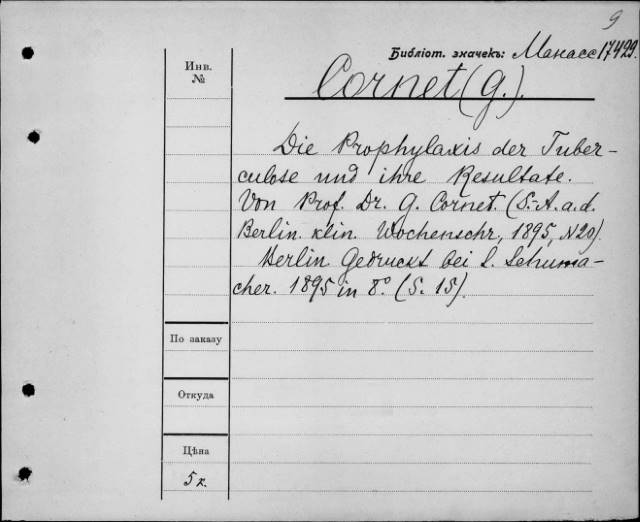 9
Библіот. значекъ: Манасс 17429.
Инв.
№
Cornet (G.).
Die Prophylaxis der Tuber-
culose und ihre Resultate.
Von Prof. Dr. G. Cornet. (S.-A. a. d.
Berlin. klin. Wochenschr, 1895, N20).
Berlin Gedruckt bei L. Schuma-
cher. 1895 in 8°. (S. 15).
По заказу
Откуда
Цѣна
5 к.